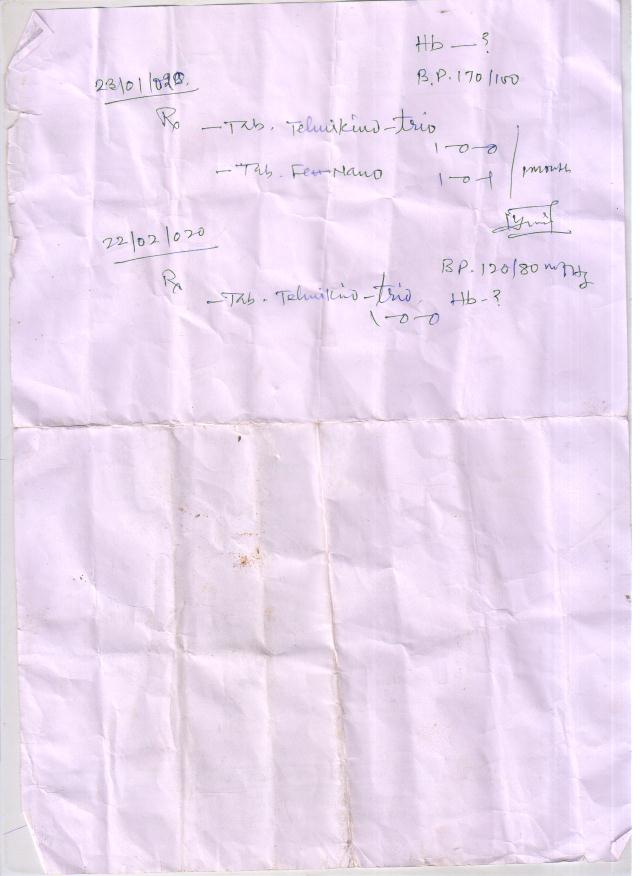 Hb — ?
23/01/020.
B.P. 170/100
Rx
— Tab. Telmikind-trio
1-0-0
- Tab. Fem-Nano
1-0-1
22/02/020
BP. 120/80 mmHg
Rx
- Tab. Telmikind-trio. Hb-?
1-0-0